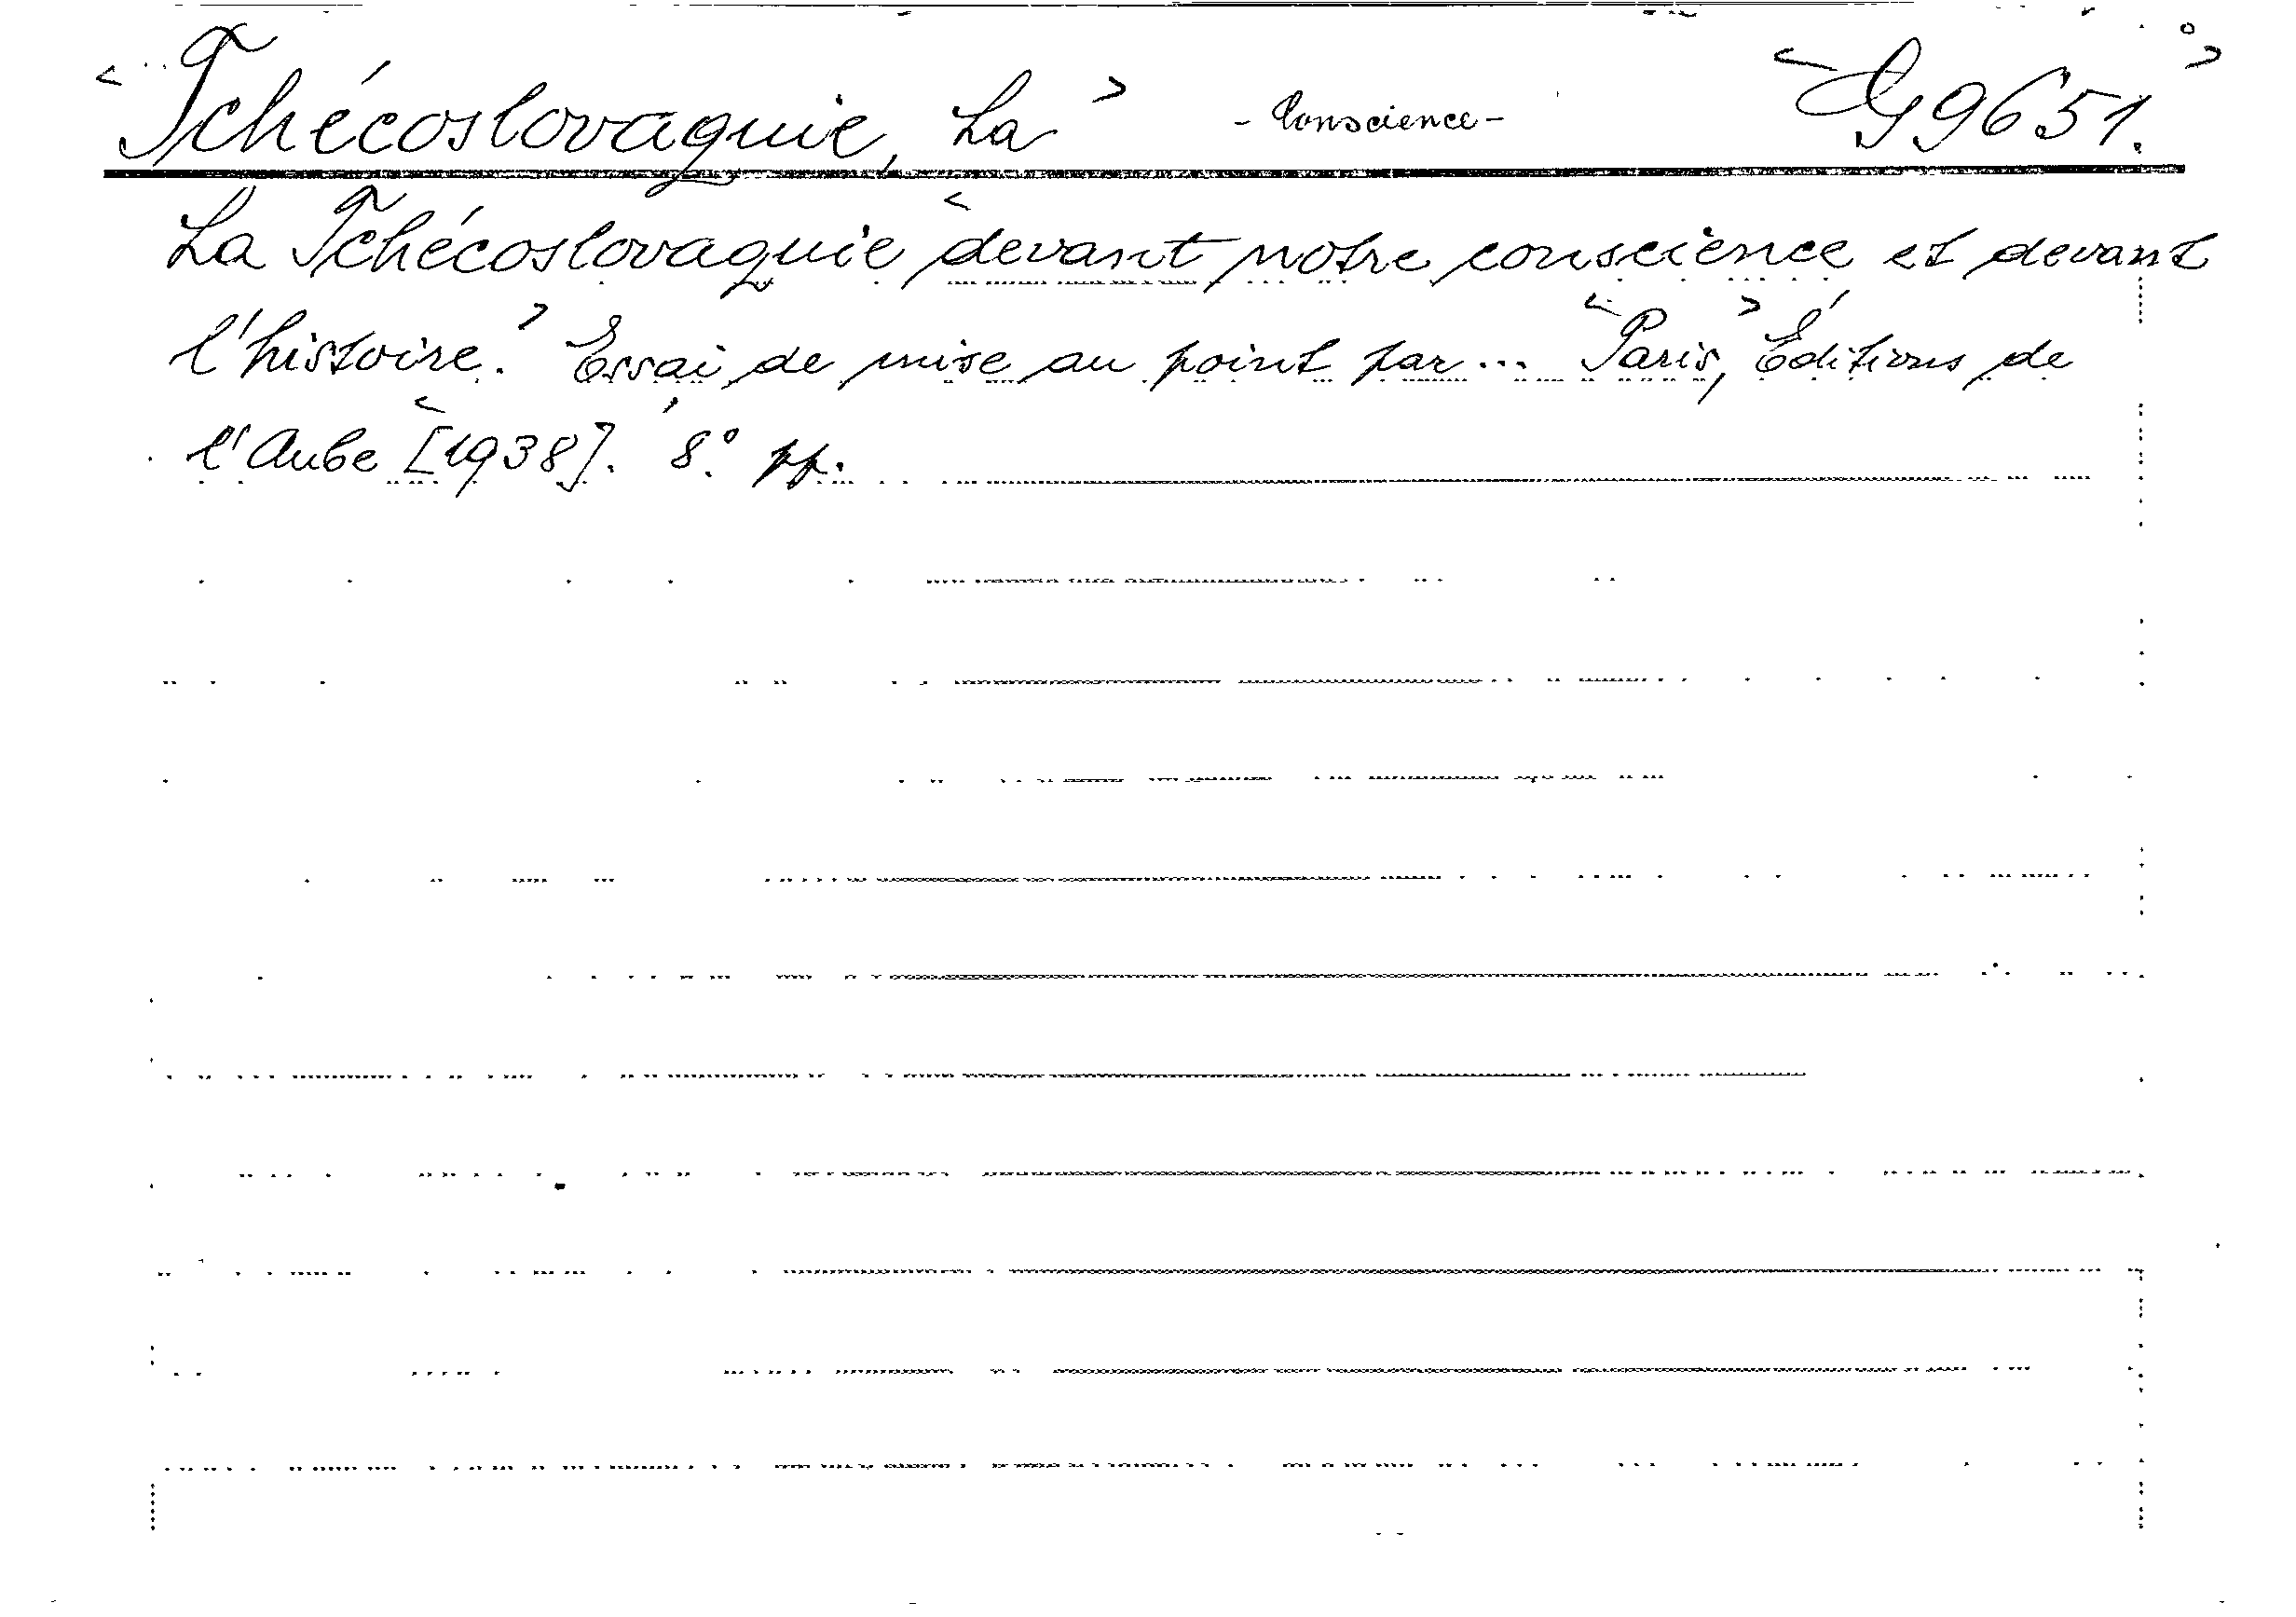 < Tchécoslovaquie, La > - Conscience - < G 9651. >
La Tchécoslovaquie < devant notre conscience et devant
l'histoire. > Essai de mise au point par ... < Paris, > Éditions de
l'Aube < [1938]. 8° pp.